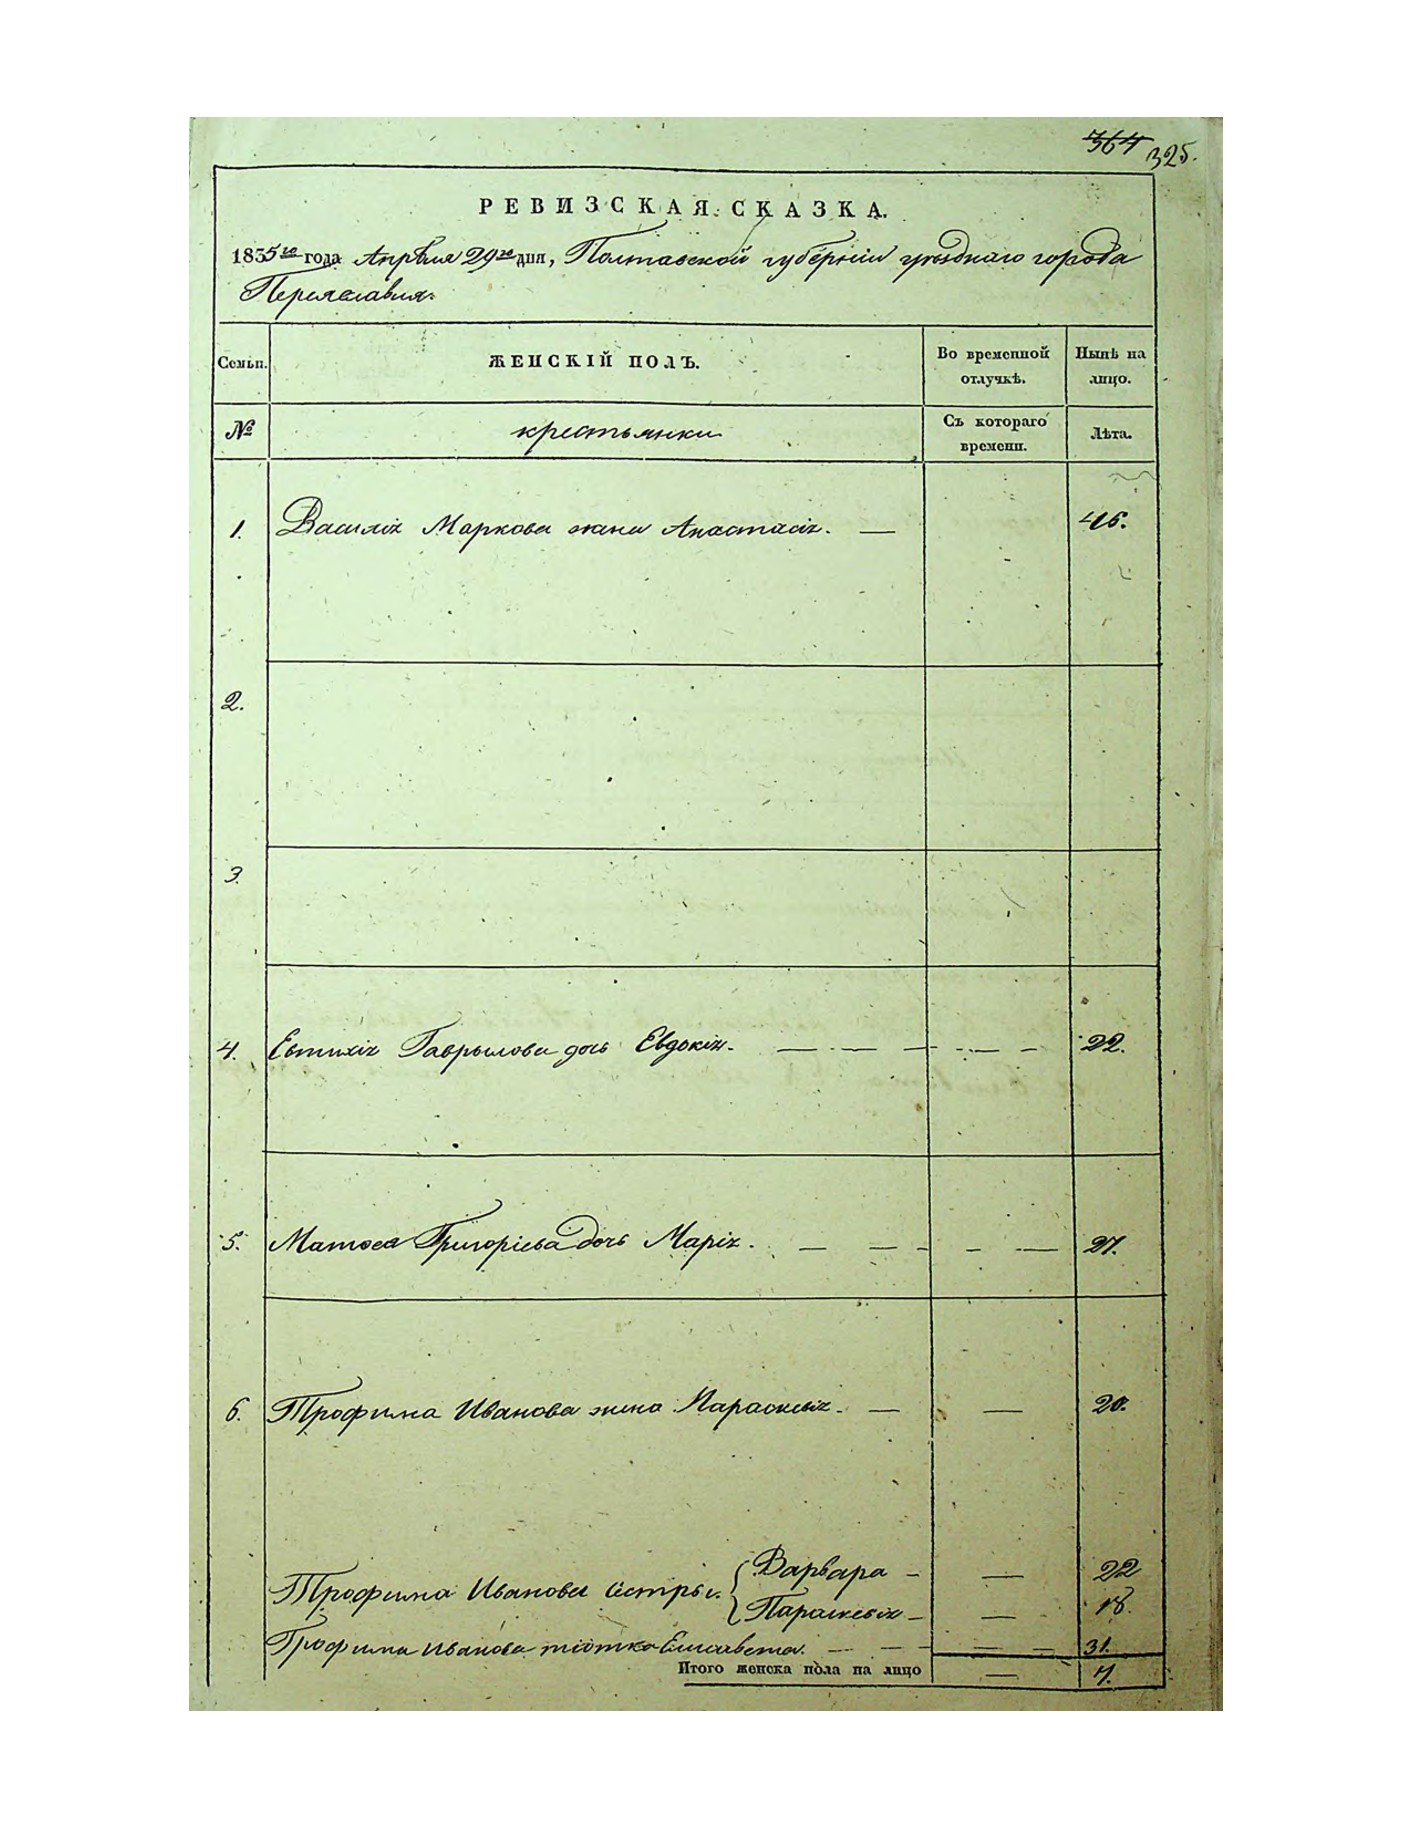 364 325.
РЕВИЗСКАЯ СКАЗКА.
1835го года Апрѣля 29го дня, Полтавской губерніи уѣзднаго города
Переяславля.
Семьи. ЖЕНСКІЙ ПОЛЪ. Во временной отлучкѣ. Нынѣ на лицо.
№ крестьянки Съ котораго времени. Лѣта.
1. Василія Маркова жена Анастасія. — 46.
2.
3.
4. Евтихія Гаврылова дочь Евдокія. — — — — — 22.
5. Матвея Григоріева дочь Марія. — — — — — 27.
6. Трофима Иванова жена Параскевія. — — 20.
Трофима Иванова сестры. { Варвара — — 22
Параскевія — — 18.
Трофима Иванова тіотка Елисавета. — — — — — 31.
Итого женска пола на лицо — 7.